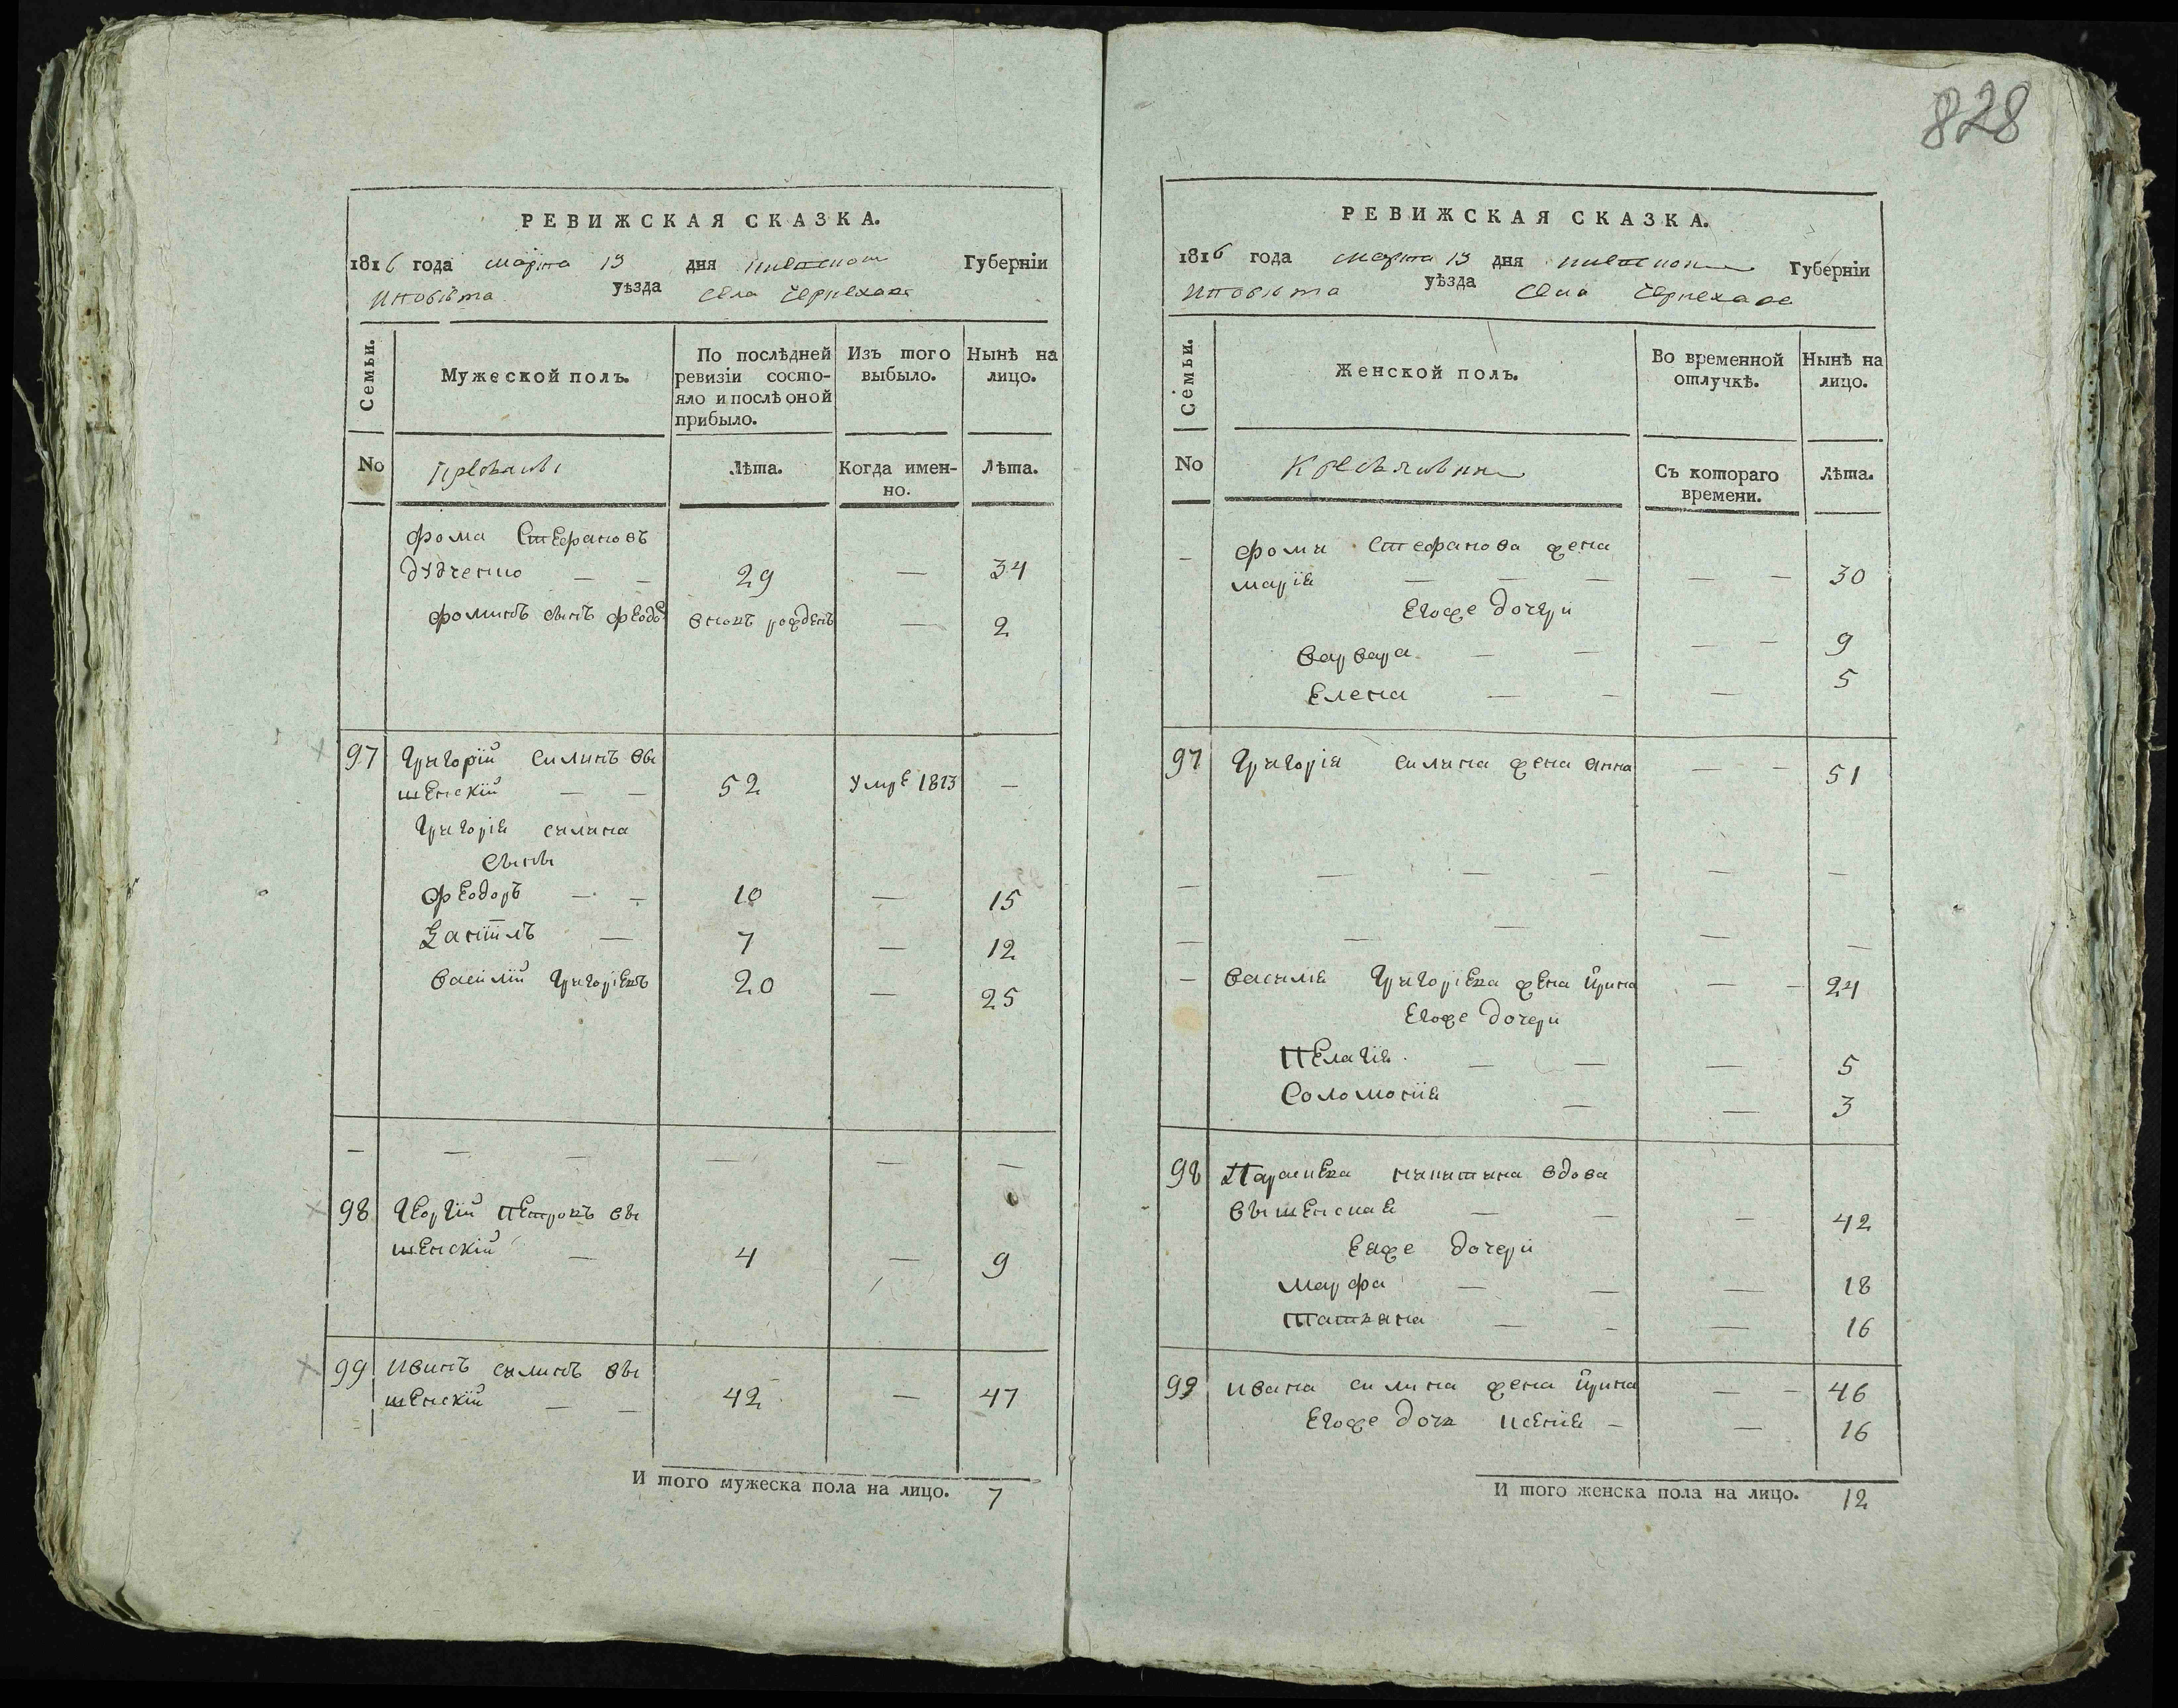 828
РЕВИЖСКАЯ СКАЗКА.
1816 года марта 13 дня Губернїи
уѣзда села
Семьи.
Мужеской полъ.
По послѣдней ревизїи состо-
яло и послѣ оной
прибыло.
Изъ того
выбыло.
Нынѣ на
лицо.
No
Лѣта.
Когда имен-
но.
Лѣта.
Фома Стефановъ
дудченко — — 29 — 34
Фоминъ сынъ Феодо рожденъ — 2
97 Григорїй Силинъ вы
шенскїй — — 52 умре 1813 —
Григорїя силина
сыны
Феодоръ — — 10 — 15
— 7 — 12
Василїй Григорїевъ 20 — 25
— — — — — —
98 Георгїй Петровъ вы
шенскїй — 4 — 9
99 Иванъ силинъ вы
шенскїй — — 42 — 47
И того мужеска пола на лицо. 7
РЕВИЖСКАЯ СКАЗКА.
1816 года марта 13 дня Губернїи
уѣзда села
Семьи.
Женской полъ.
Во временной
отлучкѣ.
Нынѣ на
лицо.
No
Съ котораго
времени.
Лѣта.
— Фоми Стефанова жена
марїя — — — — — 30
Егоже дочери
варвара — — — — 9
Елена — — — 5
97 Григорїя силина жена анна — — 51
— — — — — — —
— — — — —
— василїя Григорїева жена йрина — — 24
Егоже дочери
Пелагїя — — — 5
Соломонїя — — 3
98 Параскева никитина вдова
вышенская — — — 42
Еяже дочери
Марфа — — — 18
Татьяна — — — 16
99 ивана силина жена йрина — — 46
Егоже дочь ксенїя — — 16
И того женска пола на лицо. 12